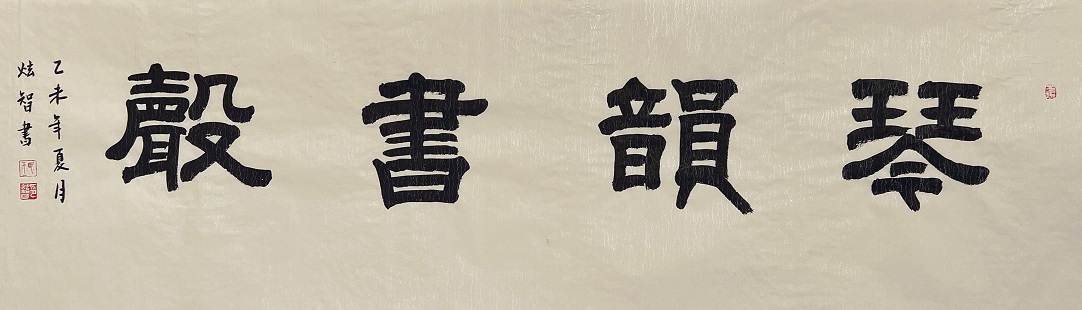 琴韻書聲
乙未年夏月
炫智書